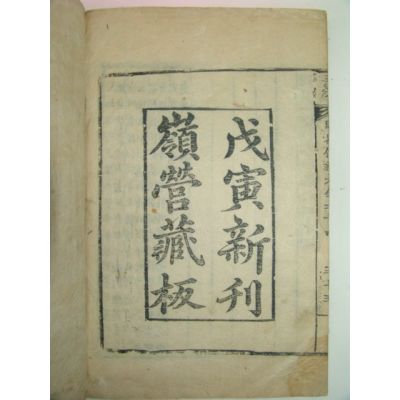 戊寅新刊
嶺營藏板